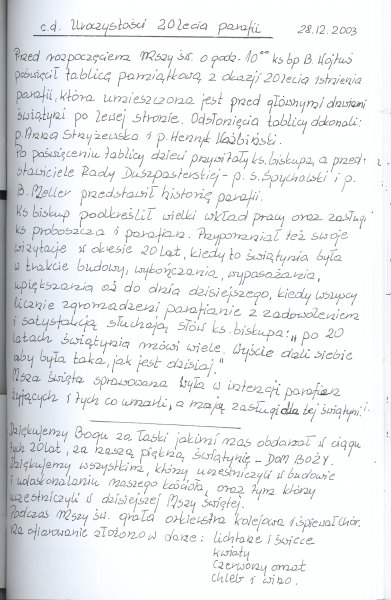 c.d. Uroczystości 20lecia parafii 28.12.2003
Przed rozpoczęciem Mszy św. o godz. 10⁰⁰ ks bp B. Wojtuś
poświęcił tablicę pamiątkową z okazji 20lecia istnienia
parafii, która umieszczona jest przed głównymi drzwiami
świątyni po lewej stronie. Odsłonięcia tablicy dokonali:
p. Anna Stryżewska i p. Henryk
Po poświęceniu tablicy dzieci przywitały ks. biskupa, a przed-
stawiciele Rady Duszpasterskiej - p. S. Spychalski i p.
B. Meller przedstawił historię parafii.
Ks biskup podkreślił wielki wkład pracy oraz zasługi
ks proboszcza i parafian. Przypomniał też swoje
wizytacje w okresie 20 lat, kiedy to świątynia była
w trakcie budowy, wykończania, wyposażania,
upiększania aż do dnia dzisiejszego, kiedy wszyscy
licznie zgromadzeni parafianie z zadowoleniem
i satysfakcją słuchają słów ks. biskupa: „po 20
latach świątynia mówi wiele. Wyście dali siebie
aby była taka, jak jest dzisiaj."
Msza święta sprawowana była w intencji parafian
żyjących i tych co umarli, a mają zasługi dla tej świątyni.
Dziękujemy Bogu za łaski jakimi nas obdarzał w ciągu
tych 20 lat, za naszą piękną świątynię - DOM BOŻY.
Dziękujemy wszystkim, którzy uczestniczyli w budowie
i udoskonalaniu naszego kościoła, oraz tym którzy
uczestniczyli w dzisiejszej Mszy Świętej.
Podczas Mszy św. grała orkiestra kolejowa i śpiewał chór.
Na ofiarowanie złożono w darze: lichtarze i świece
kwiaty
czerwony ornat
chleb i wino.